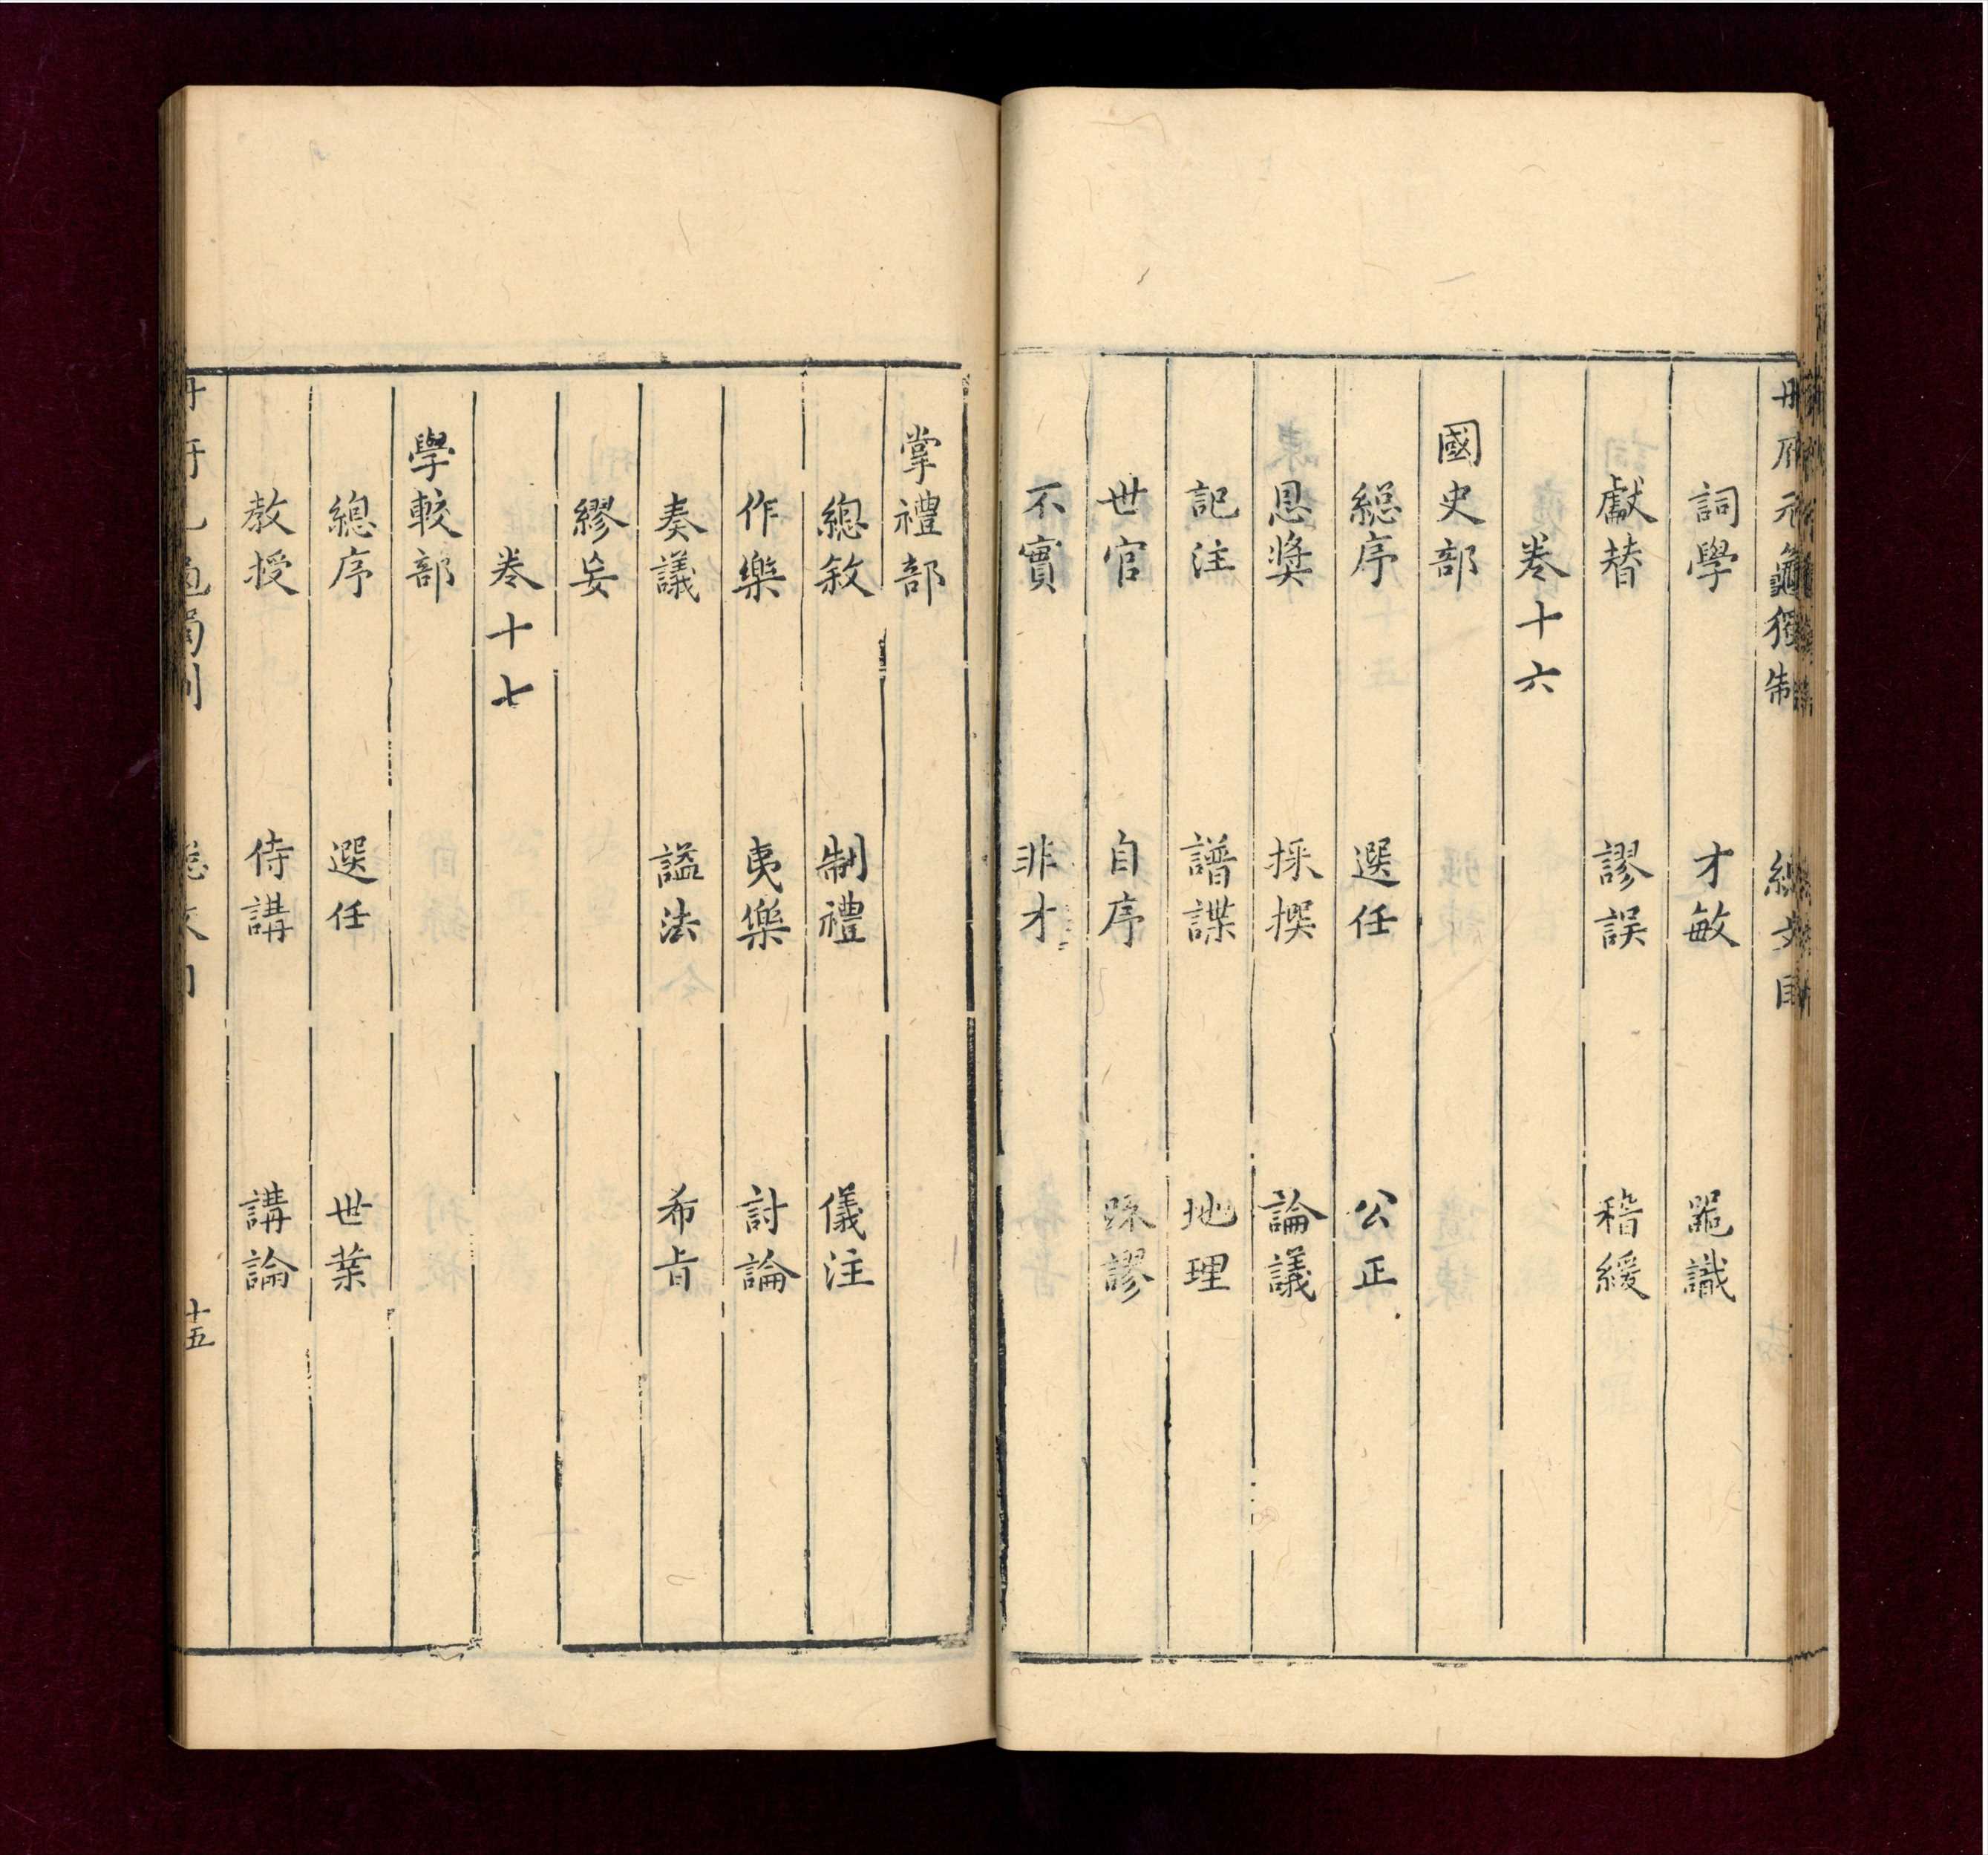 冊府元龜獨制 總文目
詞學 才敏 器識
獻替 謬誤 稽緩
卷十六
國史部
總序 選任 公正
恩奬 採撰 論議
記注 譜諜 地理
世官 自序 踈謬
不實 非才
掌禮部
總敘 制禮 儀注
作樂 夷樂 討論
奏議 謚法 希旨
繆妄
卷十七
學較部
總序 選任 世業
教授 侍講 講論
十五